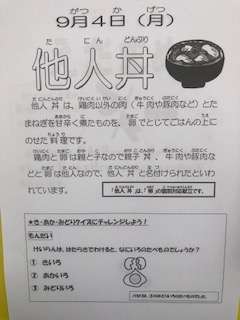 9月4日（月）
がつ か げつ
他人丼
た にん どんぶり
他人丼は、鶏肉以外の肉（牛肉や豚肉など）とた
まねぎを甘辛く煮たものを、卵でとじてごはんの上に
のせた料理です。
鶏肉と卵は親と子なので親子丼、牛肉や豚肉な
どと卵は他人なので、他人丼と名付けられたといわ
れています。
「他人丼」は、「卵」の個別対応献立です。
★き・あか・みどりクイズにチャレンジしよう！
もんだい
けいらんは、はたらきでわけると、なにいろのたべものでしょうか？
① きいろ
② あかいろ
③ みどりいろ